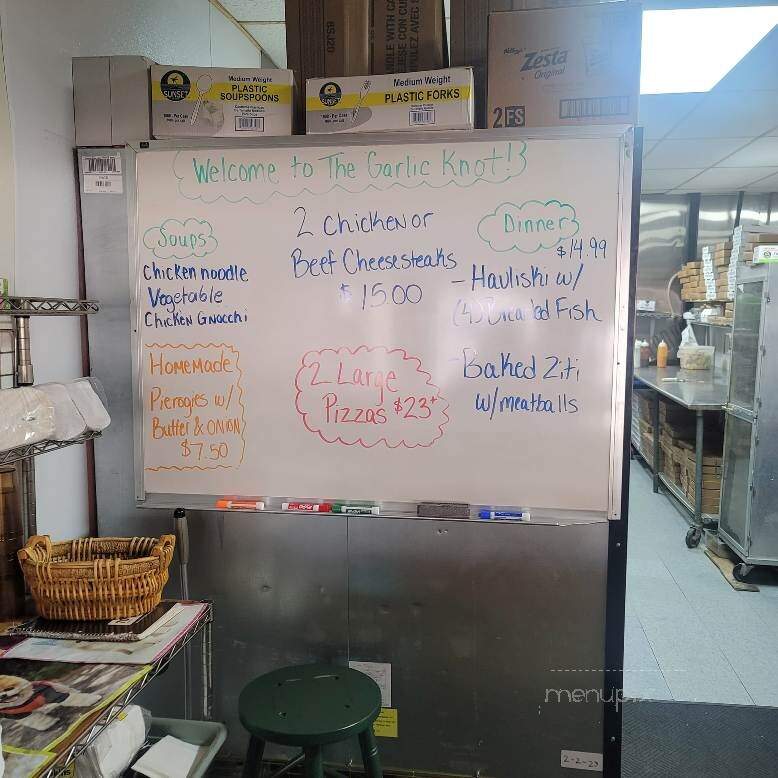 Kellogg's
Zesta
Original
2FS
SUNSET
Medium Weight
PLASTIC
SOUPSPOONS
SUNSET
Medium Weight
PLASTIC FORKS
Welcome to The Garlic Knot!!
Soups
Chicken noodle
Vegetable
Chicken Gnocchi
Homemade
Pierogies w/
Butter & ONION
$7.50
2 Chicken or
Beef Cheesesteaks
$15.00
2 Large
Pizzas $23+
Dinner
$14.99
- Hauliski w/
(4) Breaded Fish
- Baked Ziti
w/meatballs
menupix
2-2-23